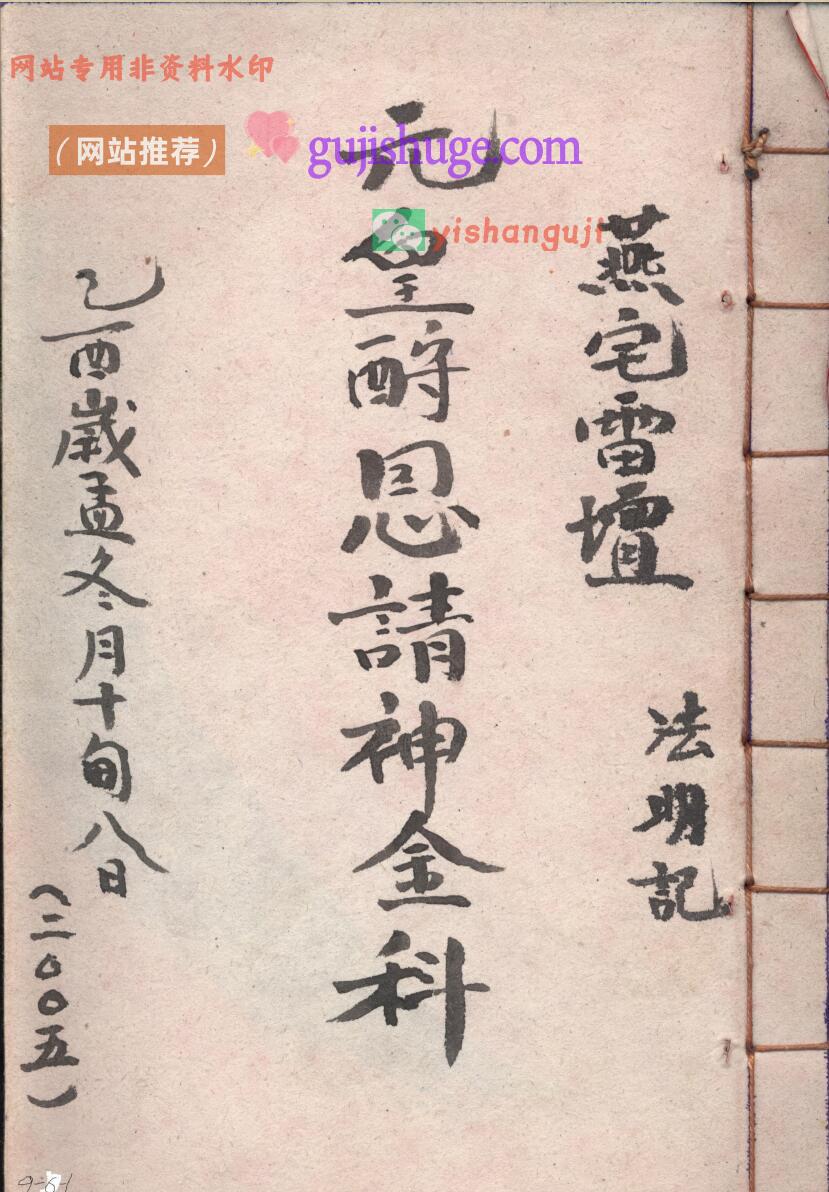 燕宅雷壇
法明記
元皇酧恩請神金科
乙酉歲孟冬月十旬八日
（二〇〇五）
网站专用非资料水印
（网站推荐）
gujishuge.com
yishanguji
9-6-1